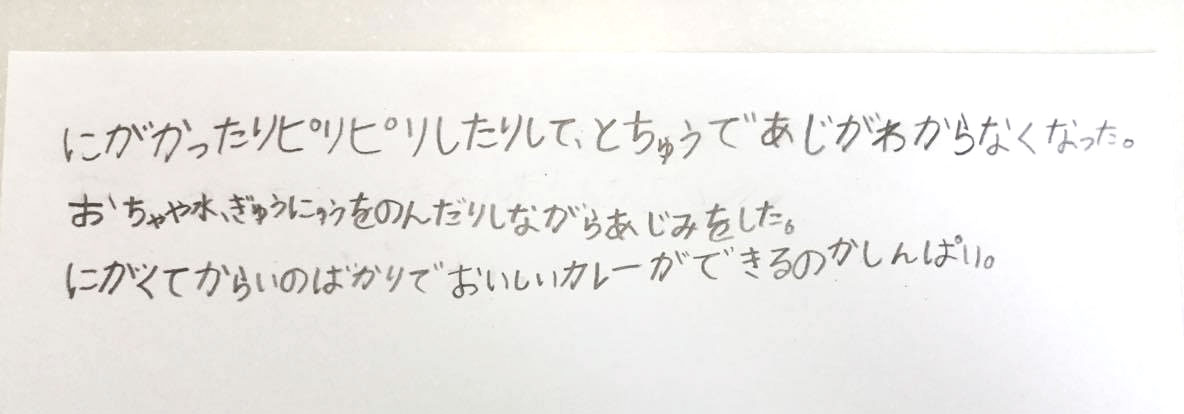 にがかったりピリピリしたりして、とちゅうであじがわからなくなった。
おちゃや水、ぎゅうにゅうをのんだりしながらあじみをした。
にがくてからいのばかりでおいしいカレーができるのかしんぱい。